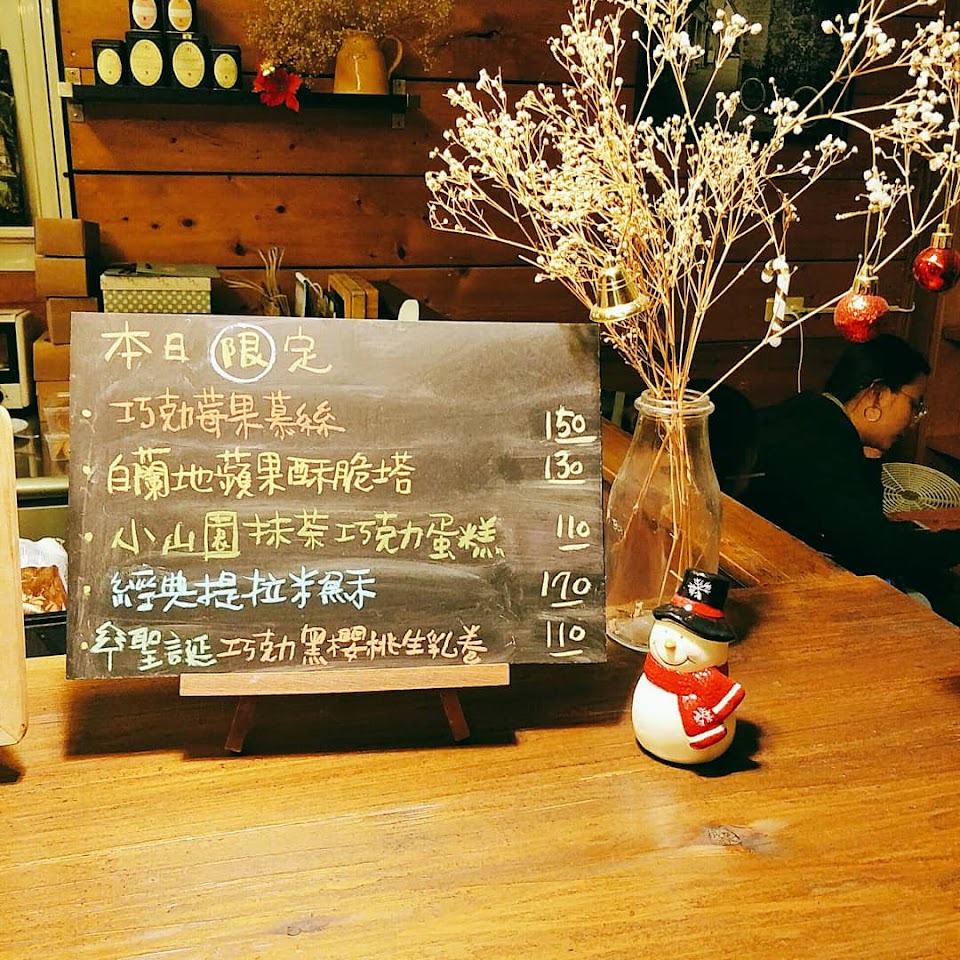 本日限定
巧克莓果慕絲 150
白蘭地蘋果酥脆塔 130
小山園抹茶巧克力蛋糕 110
經典提拉米蘇 170
聖誕巧克黑櫻桃生乳卷 110